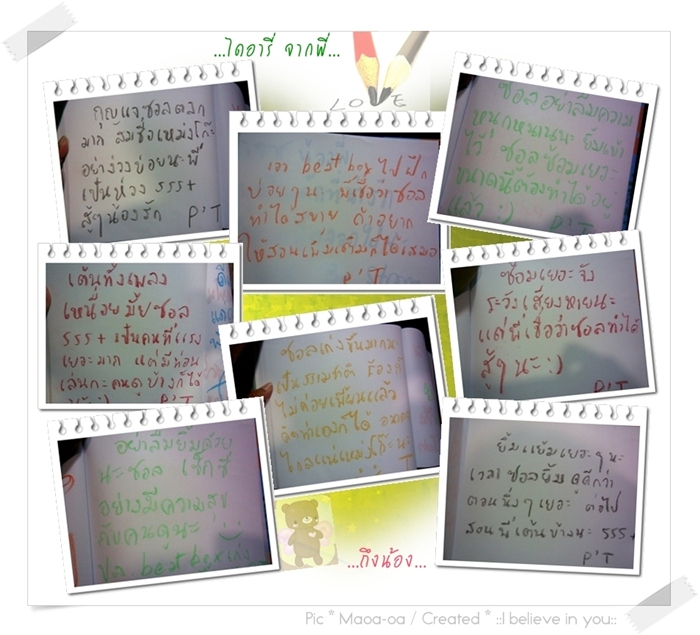 ...ไดอารี่ จากพี่...
LOVE
กุญแจซอลตลก
มาก สมชื่อแหม่งโก๊ะ
อย่าง่วงบ่อยนะ พี่
เป็นห่วง 555+
สู้ๆ น้องรัก P'T
ซอลอย่าลืมความ
หนุกหนานนะ ยิ้มเข้า
ไว้ ซอลซ้อมเยอะ
ขนาดนี้ต้องทำได้อยู่
แล้ว :) P'T
เอา best box ไปฝึก
บ่อยๆ นะ พี่เชื่อว่าซอล
ทำได้สบาย ถ้าอยาก
ให้สอนเพิ่มเติมก็ได้เสมอ
P'T
เต้นทั้งเพลง
เหนื่อยมั้ยซอล
555+ เป็นคนที่แรง
เยอะมาก แต่มีท่อน
เล่นกะคนดูบ้างก็ได้
P'T
ซ้อมเยอะจัง
ระวังเสียงหายนะ
แต่พี่เชื่อว่าซอลทำได้
สู้ๆ นะ :)
P'T
ซอลเก่งขึ้นมากนะ
เป็นธรรมชาติ ร้องก็
ไม่ค่อยเพี้ยนแล้ว
T
อย่าลืมยิ้มด้วย
นะซอล เซ็กซี่
อย่างมีความสุข
กับคนดูนะ
best box เก่ง
ยิ้มแย้มเยอะๆ นะ
เวลาซอลยิ้มดูดีกว่า
ตอนนิ่งๆ เยอะ ต่อไป
สอนพี่เต้นบ้างนะ 555+
P'T
...ถึงน้อง...
Pic * Maoa-oa / Created * ::I believe in you::